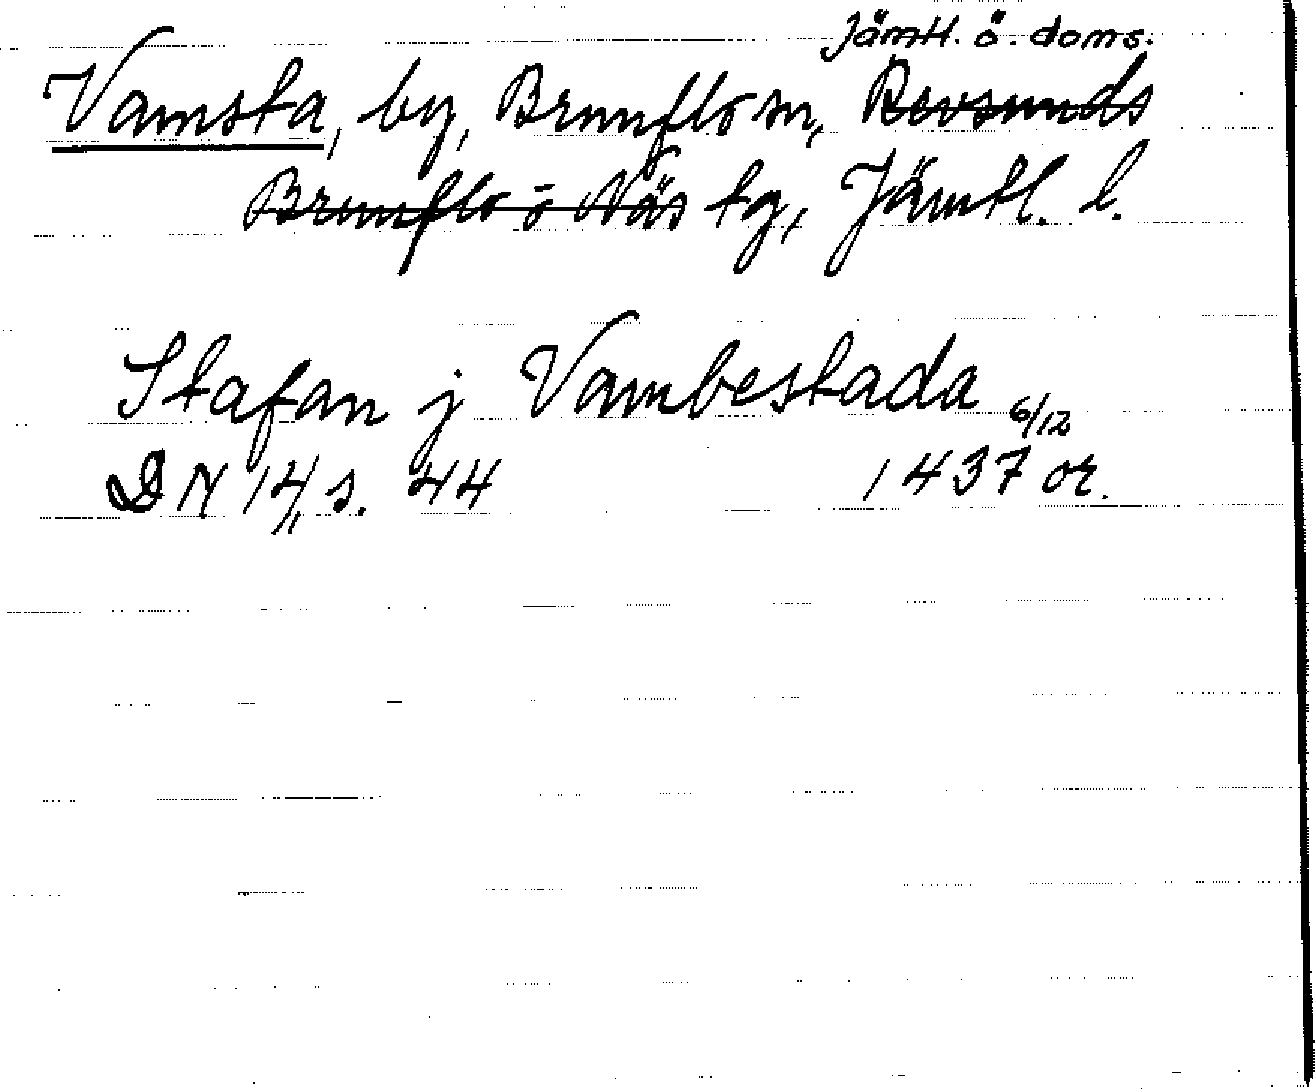 Jämtl. ö. doms.
Vamsta, by, Brunflo sn, Revsunds
Brunflo o Näs tg, Jämtl. l.
Stafan j Vambestada 6/12
DN 14, s. 44 1437 or.